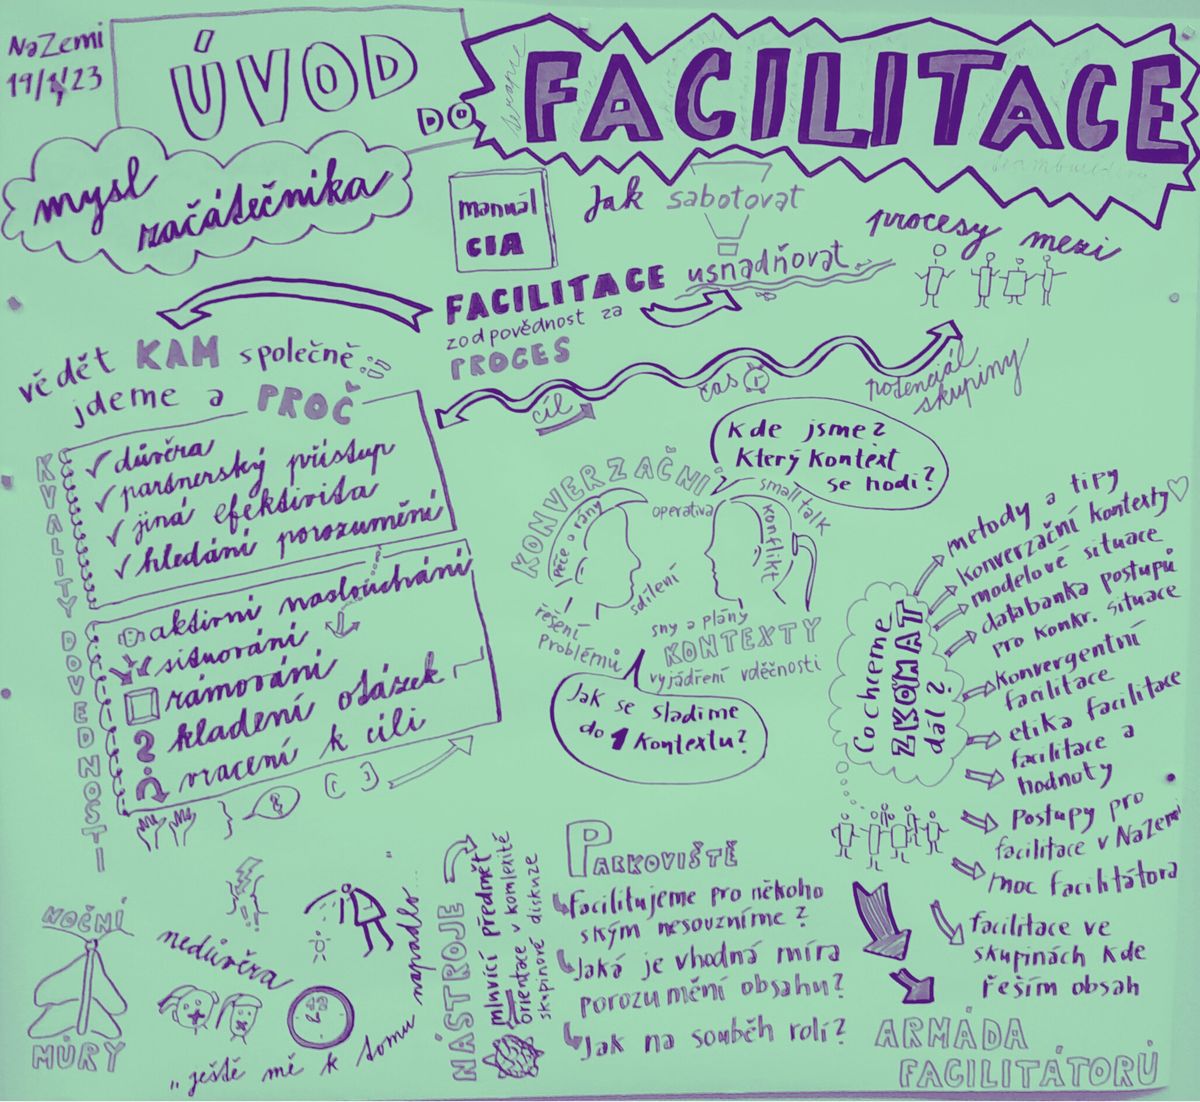 NaZemi
19/1/23
ÚVOD
DO
FACILITACE
terapie
mysl
začátečníka
manuál
CIA
Jak sabotovat
procesy mezi
FACILITACE usnadňovat
zodpovědnost za
PROCES
vědět KAM společně
jdeme a PROČ
cíl
čas
potenciál
skupiny
KVALITY DOVEDNOSTI
důvěra
partnerský přístup
jiná efektivita
hledání porozumění
aktivní naslouchání
situování
rámování
kladení otázek
vracení k cíli
KONVERZAČNÍ
KONTEXTY
Péče o rány
operativa
small talk
konflikt
sdílení
řešení
problémů
sny a plány
vyjádření vděčnosti
Kde jsme?
Který kontext
se hodí?
Jak se sladíme
do 1 kontextu?
Co chceme
ZKOUMAT
dál?
metody a tipy
konverzační kontexty
modelové situace
databanka postupů
pro konkr. situace
konvergentní
facilitace
etika facilitace
facilitace a
hodnoty
Postupy pro
facilitace v NaZemi
moc facilitátora
facilitace ve
skupinách kde
řeším obsah
ARMÁDA
FACILITÁTORŮ
NOČNÍ
MŮRY
nedůvěra
„ještě mě k tomu napadlo..."
NÁSTROJE
mluvící předmět
orientace v komlexitě
skupinové diskuze
PARKOVIŠTĚ
Facilitujeme pro někoho
s kým nesouzníme?
Jaká je vhodná míra
porozumění obsahu?
Jak na souběh rolí?